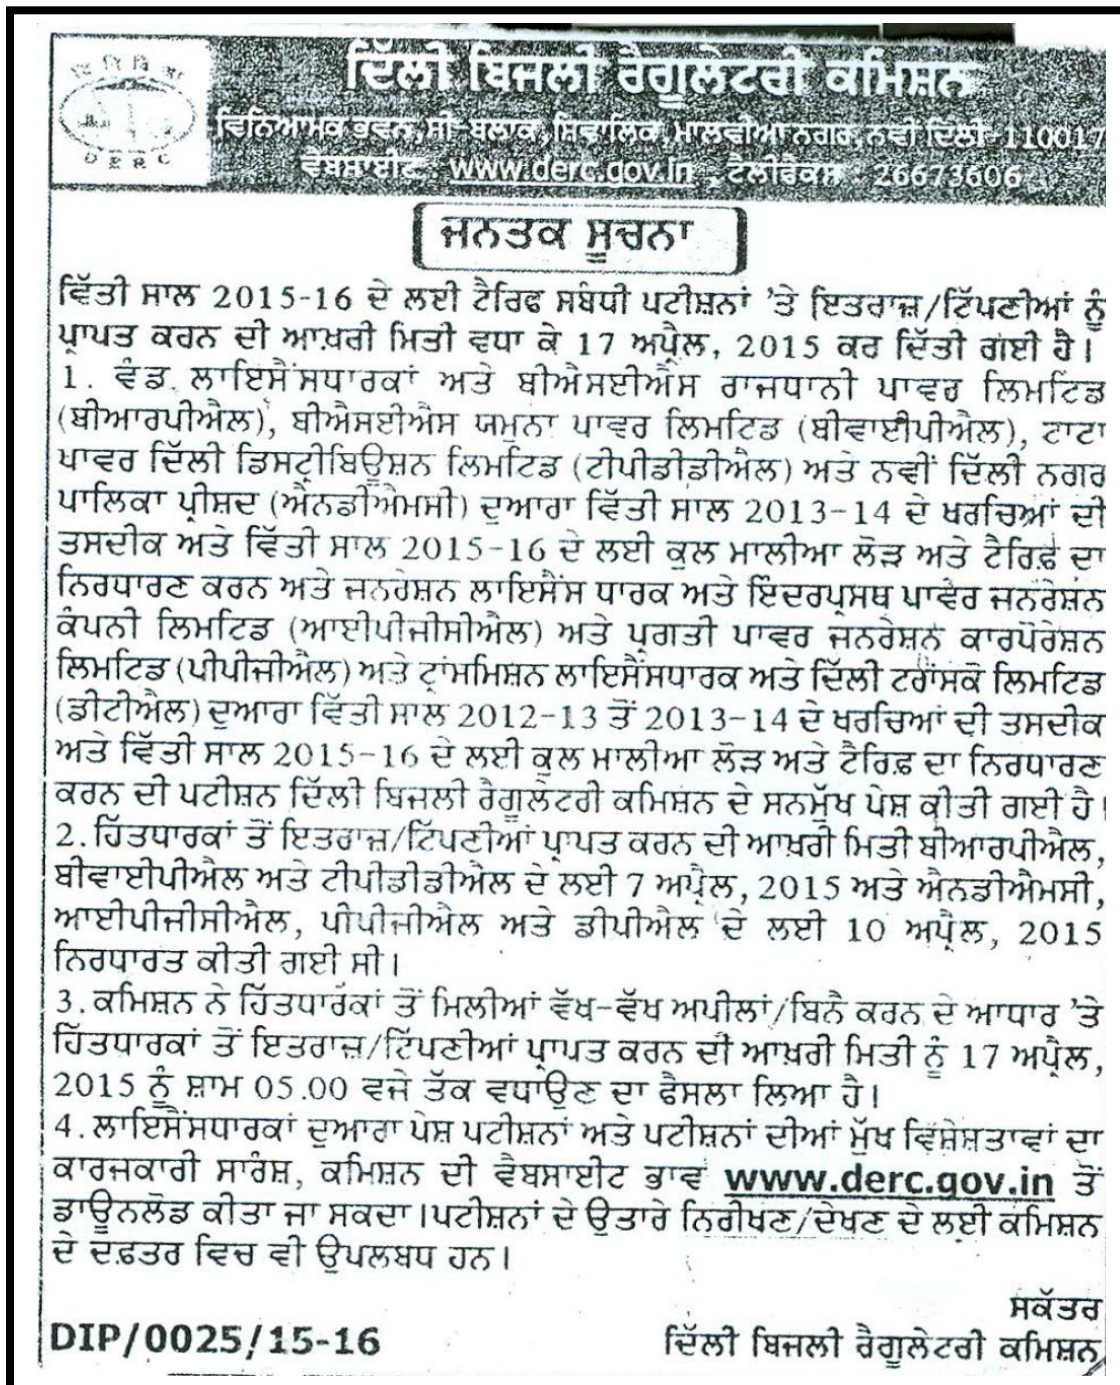 ਦਿ ਬਿ ਰੈ ਕ
DERC
ਦਿੱਲੀ ਬਿਜਲੀ ਰੈਗੂਲੇਟਰੀ ਕਮਿਸ਼ਨ
ਵਿਨਿਆਮਕ ਭਵਨ, ਸੀ-ਬਲਾਕ, ਸ਼ਿਵਾਲਿਕ, ਮਾਲਵੀਆ ਨਗਰ, ਨਵੀਂ ਦਿੱਲੀ-110017
ਵੈਬਸਾਈਟ : www.derc.gov.in , ਟੈਲੀਫੈਕਸ : 26673606
ਜਨਤਕ ਸੂਚਨਾ
ਵਿੱਤੀ ਸਾਲ 2015-16 ਦੇ ਲਈ ਟੈਰਿਫ ਸਬੰਧੀ ਪਟੀਸ਼ਨਾਂ 'ਤੇ ਇਤਰਾਜ਼/ਟਿੱਪਣੀਆਂ ਨੂੰ
ਪ੍ਰਾਪਤ ਕਰਨ ਦੀ ਆਖ਼ਰੀ ਮਿਤੀ ਵਧਾ ਕੇ 17 ਅਪ੍ਰੈਲ, 2015 ਕਰ ਦਿੱਤੀ ਗਈ ਹੈ।
1. ਵੰਡ ਲਾਇਸੈਂਸਧਾਰਕਾਂ ਅਤੇ ਬੀਐਸਈਐਸ ਰਾਜਧਾਨੀ ਪਾਵਰ ਲਿਮਟਿਡ
(ਬੀਆਰਪੀਐਲ), ਬੀਐਸਈਐਸ ਯਮੁਨਾ ਪਾਵਰ ਲਿਮਟਿਡ (ਬੀਵਾਈਪੀਐਲ), ਟਾਟਾ
ਪਾਵਰ ਦਿੱਲੀ ਡਿਸਟ੍ਰੀਬਿਊਸ਼ਨ ਲਿਮਟਿਡ (ਟੀਪੀਡੀਡੀਐਲ) ਅਤੇ ਨਵੀਂ ਦਿੱਲੀ ਨਗਰ
ਪਾਲਿਕਾ ਪ੍ਰੀਸ਼ਦ (ਐਨਡੀਐਮਸੀ) ਦੁਆਰਾ ਵਿੱਤੀ ਸਾਲ 2013-14 ਦੇ ਖਰਚਿਆਂ ਦੀ
ਤਸਦੀਕ ਅਤੇ ਵਿੱਤੀ ਸਾਲ 2015-16 ਦੇ ਲਈ ਕੁਲ ਮਾਲੀਆ ਲੋੜ ਅਤੇ ਟੈਰਿਫ਼ ਦਾ
ਨਿਰਧਾਰਣ ਕਰਨ ਅਤੇ ਜਨਰੇਸ਼ਨ ਲਾਇਸੈਂਸ ਧਾਰਕ ਅਤੇ ਇੰਦਰਪ੍ਰਸਥ ਪਾਵਰ ਜਨਰੇਸ਼ਨ
ਕੰਪਨੀ ਲਿਮਟਿਡ (ਆਈਪੀਜੀਸੀਐਲ) ਅਤੇ ਪ੍ਰਗਤੀ ਪਾਵਰ ਜਨਰੇਸ਼ਨ ਕਾਰਪੋਰੇਸ਼ਨ
ਲਿਮਟਿਡ (ਪੀਪੀਜੀਐਲ) ਅਤੇ ਟ੍ਰਾਂਸਮਿਸ਼ਨ ਲਾਇਸੈਂਸਧਾਰਕ ਅਤੇ ਦਿੱਲੀ ਟਰਾਂਸਕੋ ਲਿਮਟਿਡ
(ਡੀਟੀਐਲ) ਦੁਆਰਾ ਵਿੱਤੀ ਸਾਲ 2012-13 ਤੋਂ 2013-14 ਦੇ ਖਰਚਿਆਂ ਦੀ ਤਸਦੀਕ
ਅਤੇ ਵਿੱਤੀ ਸਾਲ 2015-16 ਦੇ ਲਈ ਕੁਲ ਮਾਲੀਆ ਲੋੜ ਅਤੇ ਟੈਰਿਫ਼ ਦਾ ਨਿਰਧਾਰਣ
ਕਰਨ ਦੀ ਪਟੀਸ਼ਨ ਦਿੱਲੀ ਬਿਜਲੀ ਰੈਗੂਲੇਟਰੀ ਕਮਿਸ਼ਨ ਦੇ ਸਨਮੁੱਖ ਪੇਸ਼ ਕੀਤੀ ਗਈ ਹੈ।
2. ਹਿੱਤਧਾਰਕਾਂ ਤੋਂ ਇਤਰਾਜ਼/ਟਿੱਪਣੀਆਂ ਪ੍ਰਾਪਤ ਕਰਨ ਦੀ ਆਖ਼ਰੀ ਮਿਤੀ ਬੀਆਰਪੀਐਲ,
ਬੀਵਾਈਪੀਐਲ ਅਤੇ ਟੀਪੀਡੀਡੀਐਲ ਦੇ ਲਈ 7 ਅਪ੍ਰੈਲ, 2015 ਅਤੇ ਐਨਡੀਐਮਸੀ,
ਆਈਪੀਜੀਸੀਐਲ, ਪੀਪੀਜੀਐਲ ਅਤੇ ਡੀਪੀਐਲ ਦੇ ਲਈ 10 ਅਪ੍ਰੈਲ, 2015
ਨਿਰਧਾਰਤ ਕੀਤੀ ਗਈ ਸੀ।
3. ਕਮਿਸ਼ਨ ਨੇ ਹਿੱਤਧਾਰਕਾਂ ਤੋਂ ਮਿਲੀਆਂ ਵੱਖ-ਵੱਖ ਅਪੀਲਾਂ/ਬਿਨੈ ਕਰਨ ਦੇ ਆਧਾਰ 'ਤੇ
ਹਿੱਤਧਾਰਕਾਂ ਤੋਂ ਇਤਰਾਜ਼/ਟਿੱਪਣੀਆਂ ਪ੍ਰਾਪਤ ਕਰਨ ਦੀ ਆਖ਼ਰੀ ਮਿਤੀ ਨੂੰ 17 ਅਪ੍ਰੈਲ,
2015 ਨੂੰ ਸ਼ਾਮ 05.00 ਵਜੇ ਤੱਕ ਵਧਾਉਣ ਦਾ ਫੈਸਲਾ ਲਿਆ ਹੈ।
4. ਲਾਇਸੈਂਸਧਾਰਕਾਂ ਦੁਆਰਾ ਪੇਸ਼ ਪਟੀਸ਼ਨਾਂ ਅਤੇ ਪਟੀਸ਼ਨਾਂ ਦੀਆਂ ਮੁੱਖ ਵਿਸ਼ੇਸ਼ਤਾਵਾਂ ਦਾ
ਕਾਰਜਕਾਰੀ ਸਾਰੰਸ਼, ਕਮਿਸ਼ਨ ਦੀ ਵੈਬਸਾਈਟ ਭਾਵ www.derc.gov.in ਤੋਂ
ਡਾਊਨਲੋਡ ਕੀਤਾ ਜਾ ਸਕਦਾ।ਪਟੀਸ਼ਨਾਂ ਦੇ ਉਤਾਰੇ ਨਿਰੀਖਣ/ਦੇਖਣ ਦੇ ਲਈ ਕਮਿਸ਼ਨ
ਦੇ ਦਫ਼ਤਰ ਵਿਚ ਵੀ ਉਪਲਬਧ ਹਨ।
ਸਕੱਤਰ
DIP/0025/15-16 ਦਿੱਲੀ ਬਿਜਲੀ ਰੈਗੂਲੇਟਰੀ ਕਮਿਸ਼ਨ